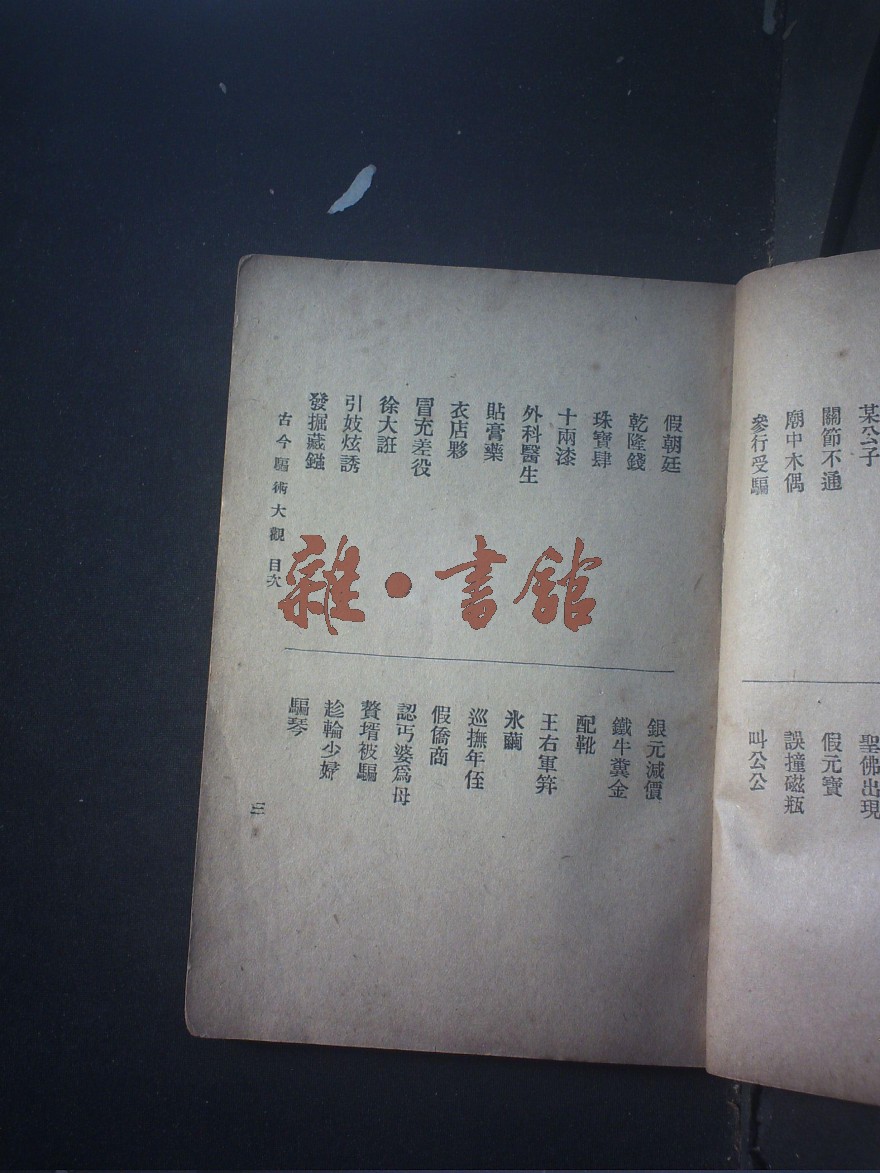 某公子
關節不通
廟中木偶
參行受騙
聖佛出現
假元寶
誤撞磁瓶
叫公公
假朝廷
乾隆錢
珠寶肆
十兩漆
外科醫生
貼膏藥
衣店夥
冒充差役
徐大誑
引妓炫誘
發掘藏鏹
銀元減價
鐵牛糞金
配靴
王右軍筆
氷繭
巡撫年侄
假僑商
認丐婆爲母
贅壻被騙
趁輪少婦
騙琴
古今騙術大觀 目次
三
雜·書館